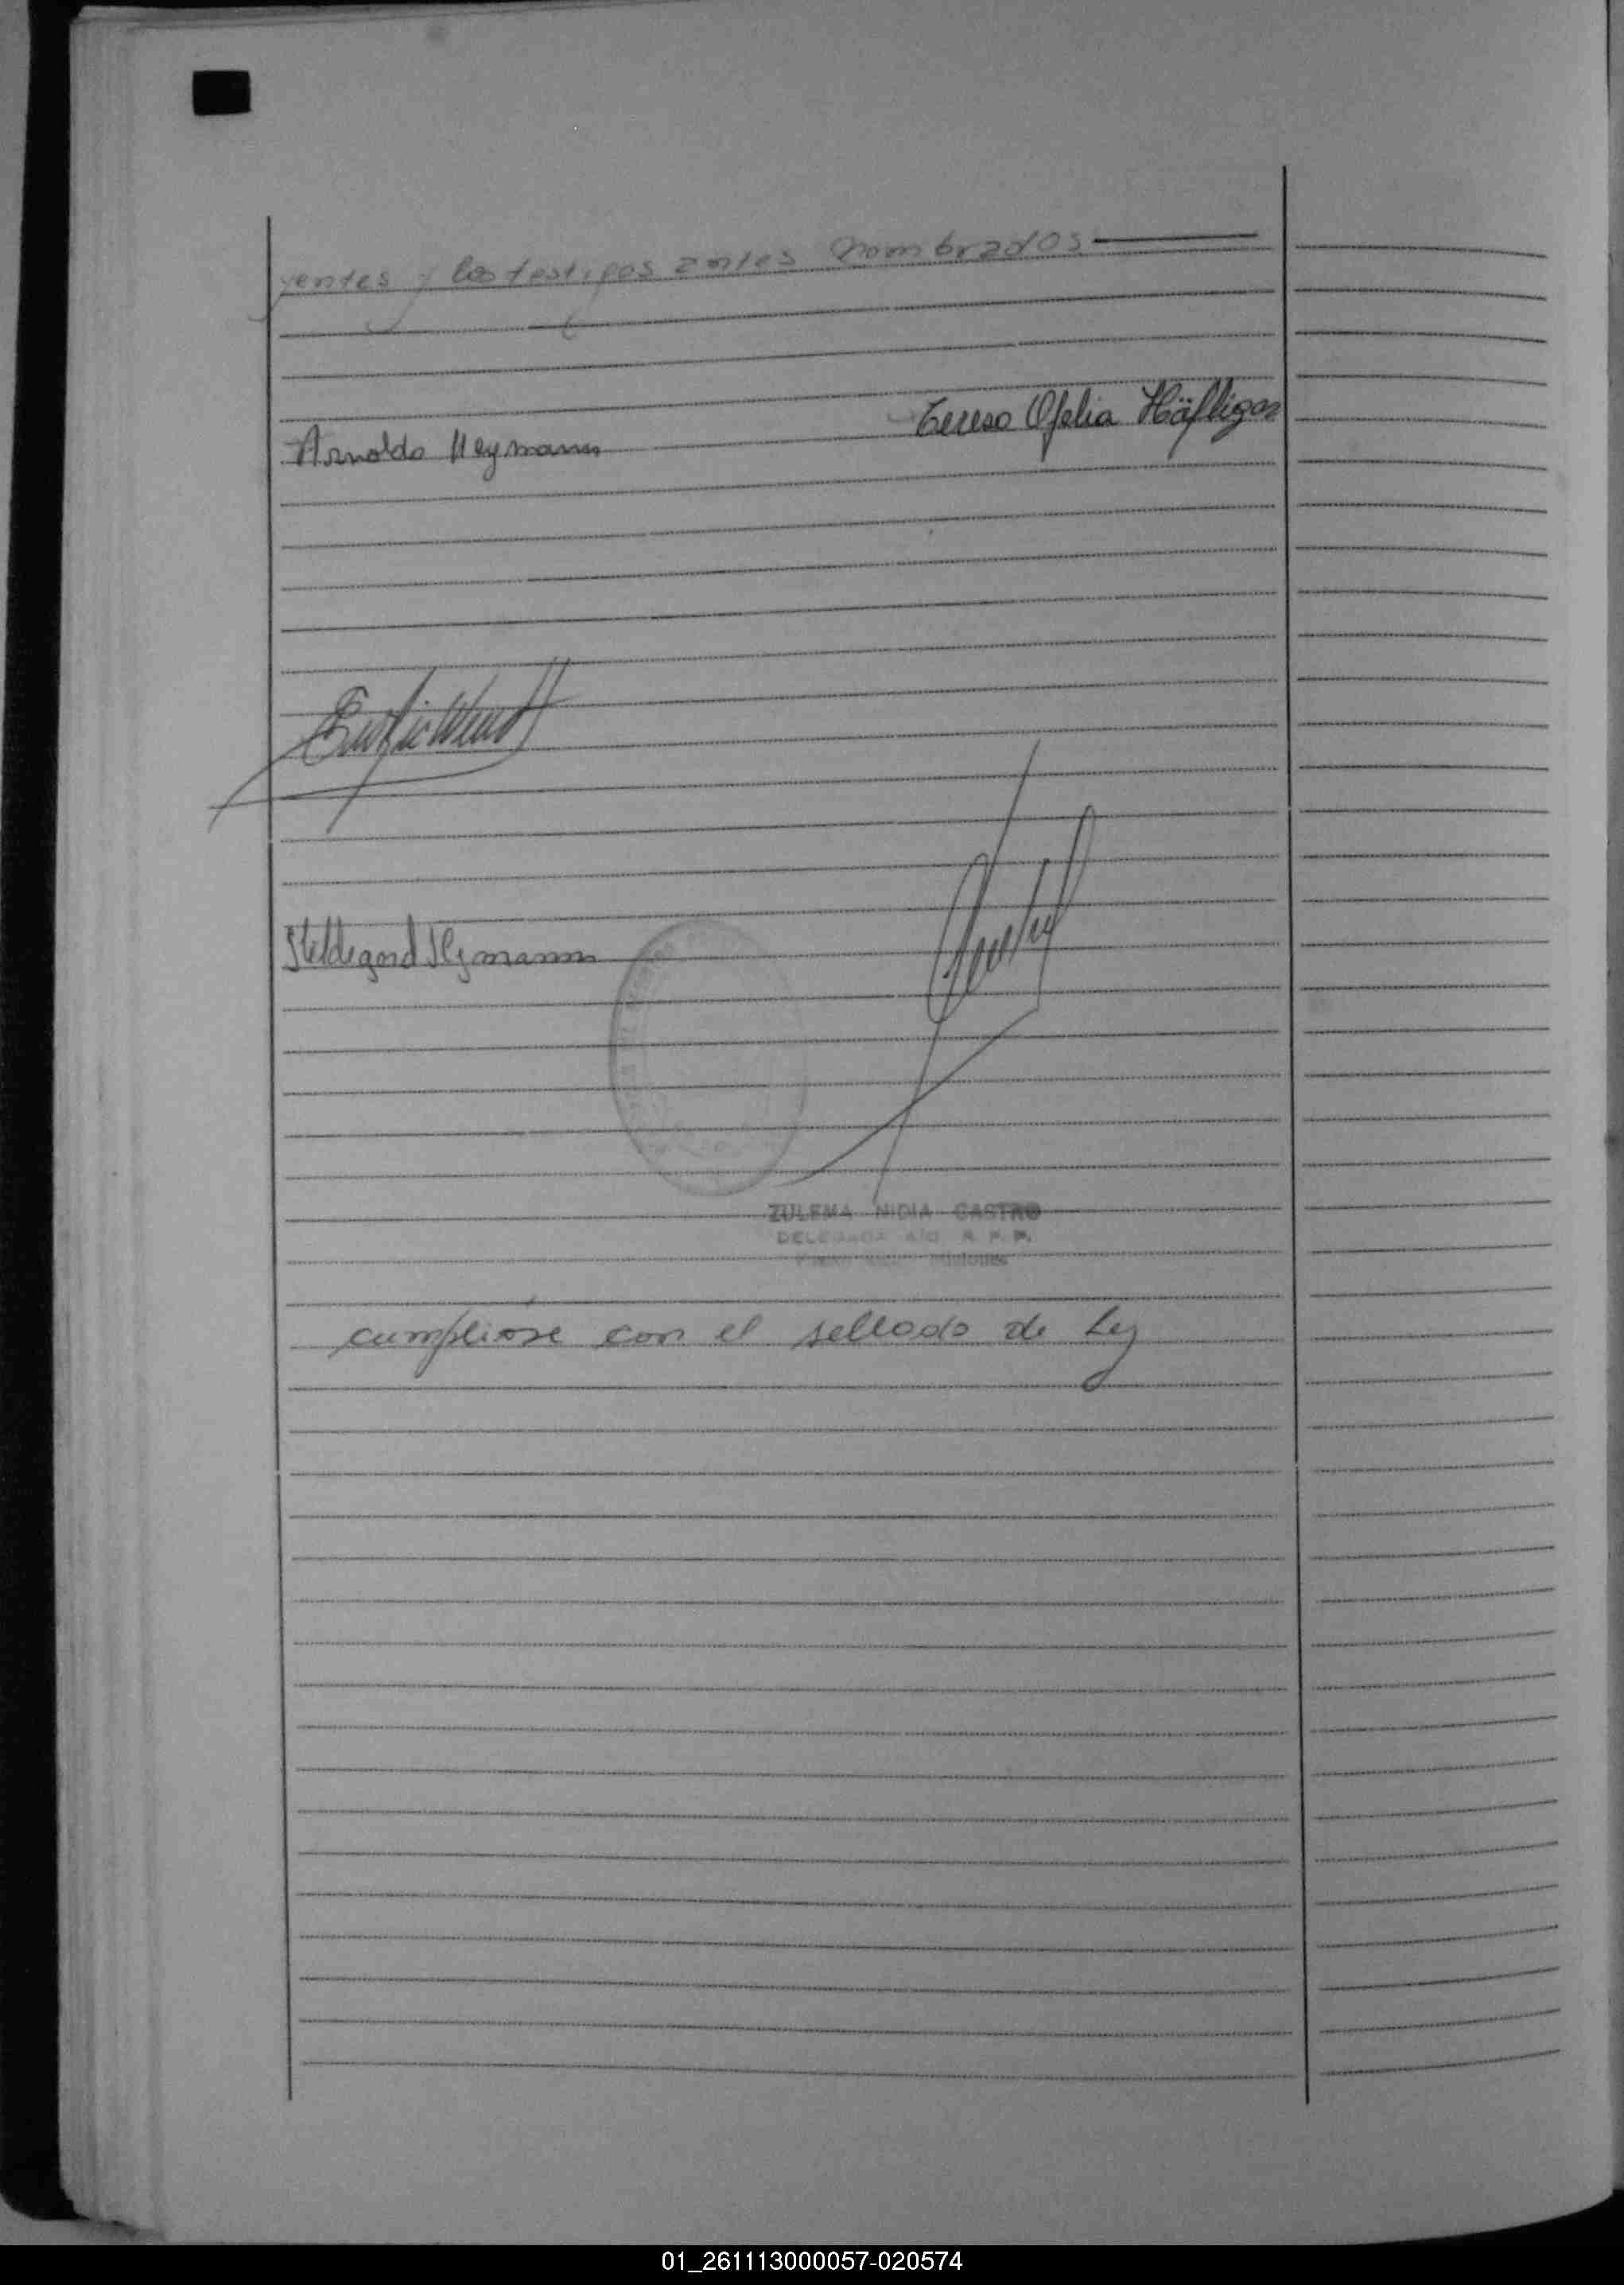 yentes y los testigos antes nombrados.
Arnoldo Heymann
Teresa Ofelia Häfliger
Hildegard Heymann
ZULEMA NIDIA CASTRO
DELEGADA R. P. P.
cumplióse con el sellado de Ley
01_261113000057-020574